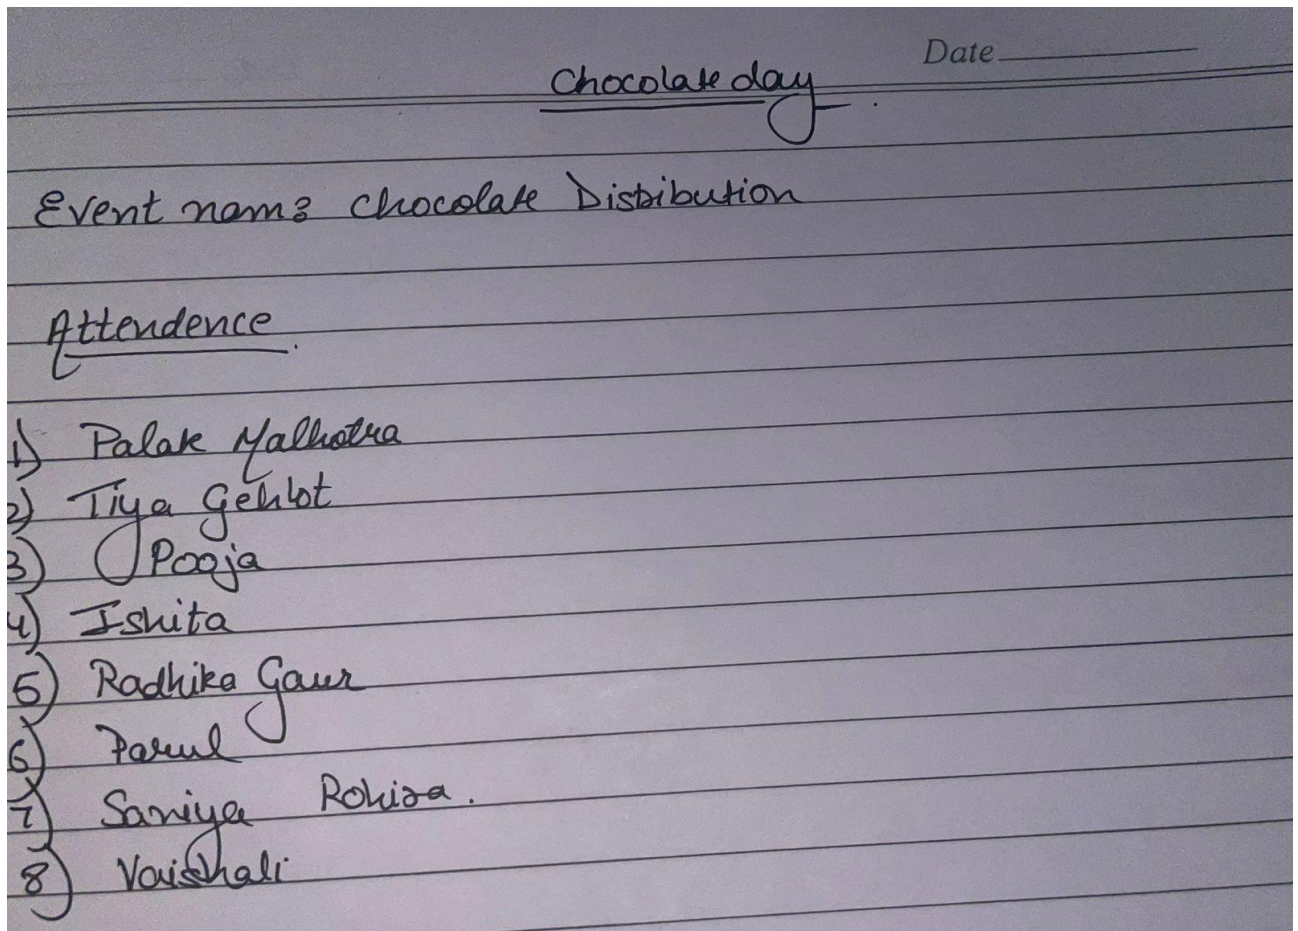 Date
Chocolate day
Event name: Chocolate Distibution
Attendence
1) Palak Malhotra
2) Tiya Gehlot
3) Pooja
4) Ishita
5) Radhika Gaur
6) Parul
7) Saniya
8) Vaishali